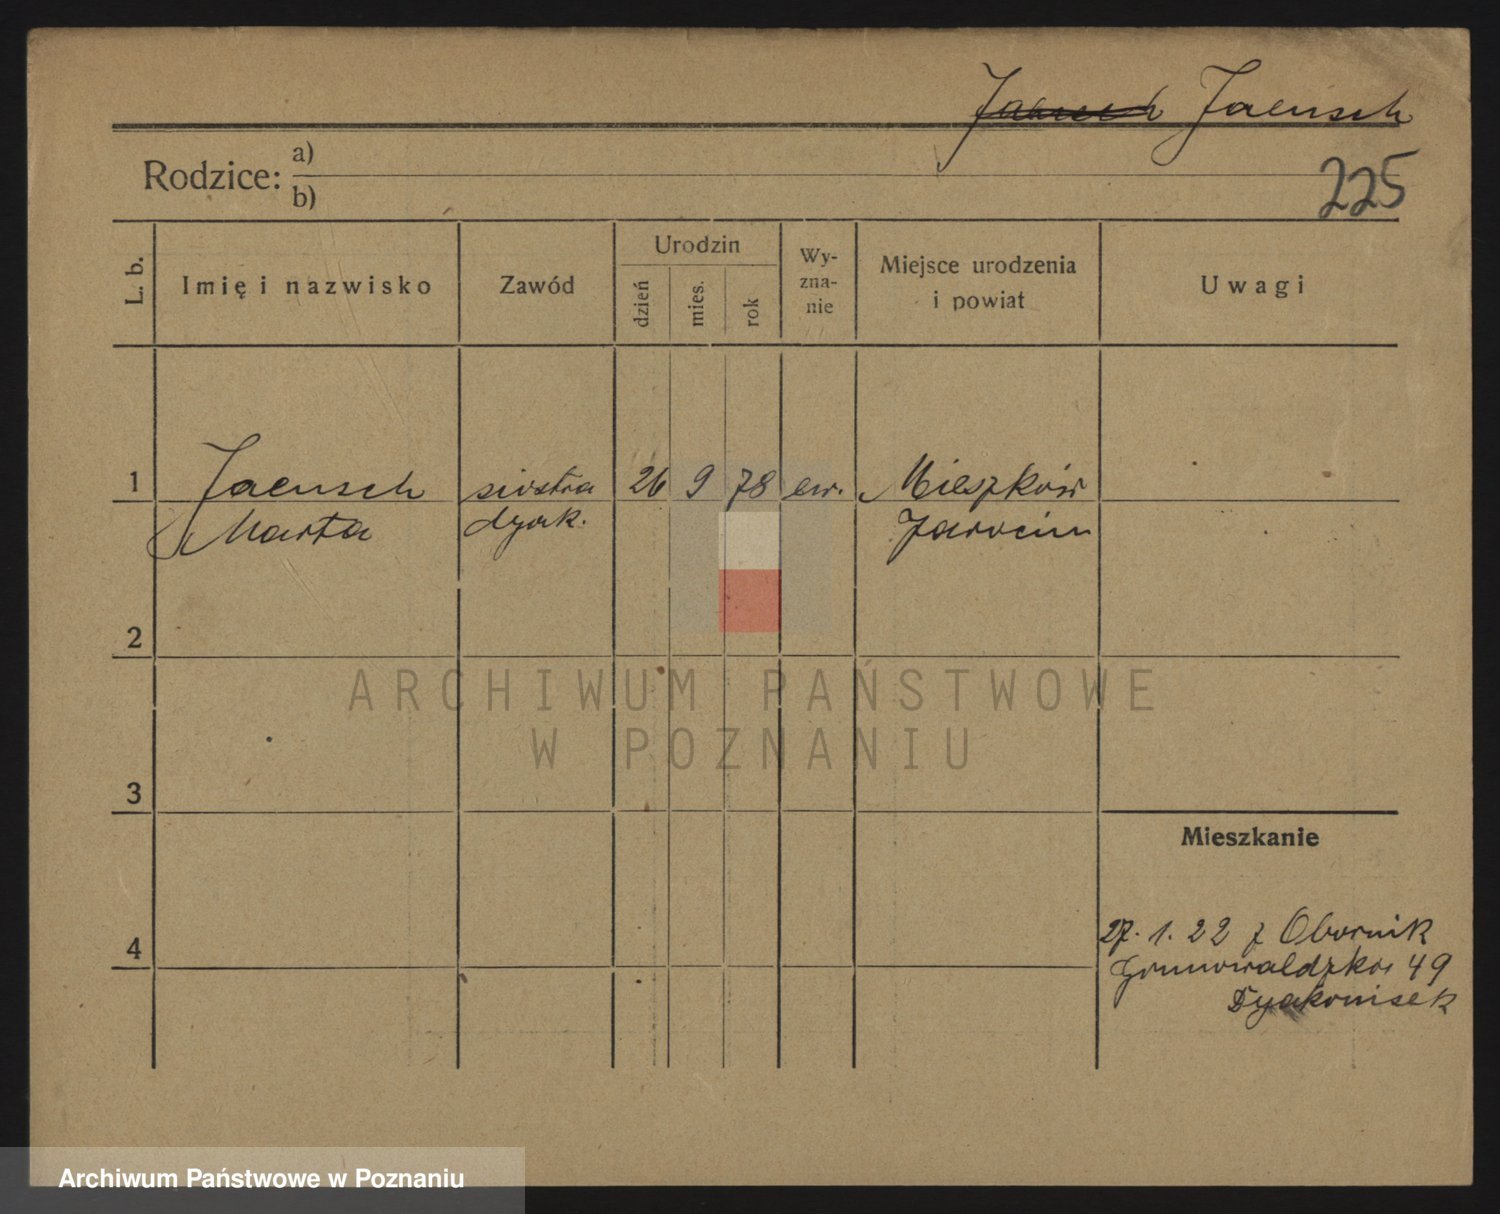 Jaensch
Rodzice: a)
b)
225
L. b.
Imię i nazwisko
Zawód
Urodzin
dzień
mies.
rok
Wy-
zna-
nie
Miejsce urodzenia
i powiat
Uwagi
1 Jaensch siostra 26 9 78 ew. Mieszków
Marta dyak. Jarocin
2
ARCHIWUM PAŃSTWOWE
W POZNANIU
3
Mieszkanie
4
27. 1. 22 z Obornik
Grunwaldzka 49
Dyakonisek
Archiwum Państwowe w Poznaniu